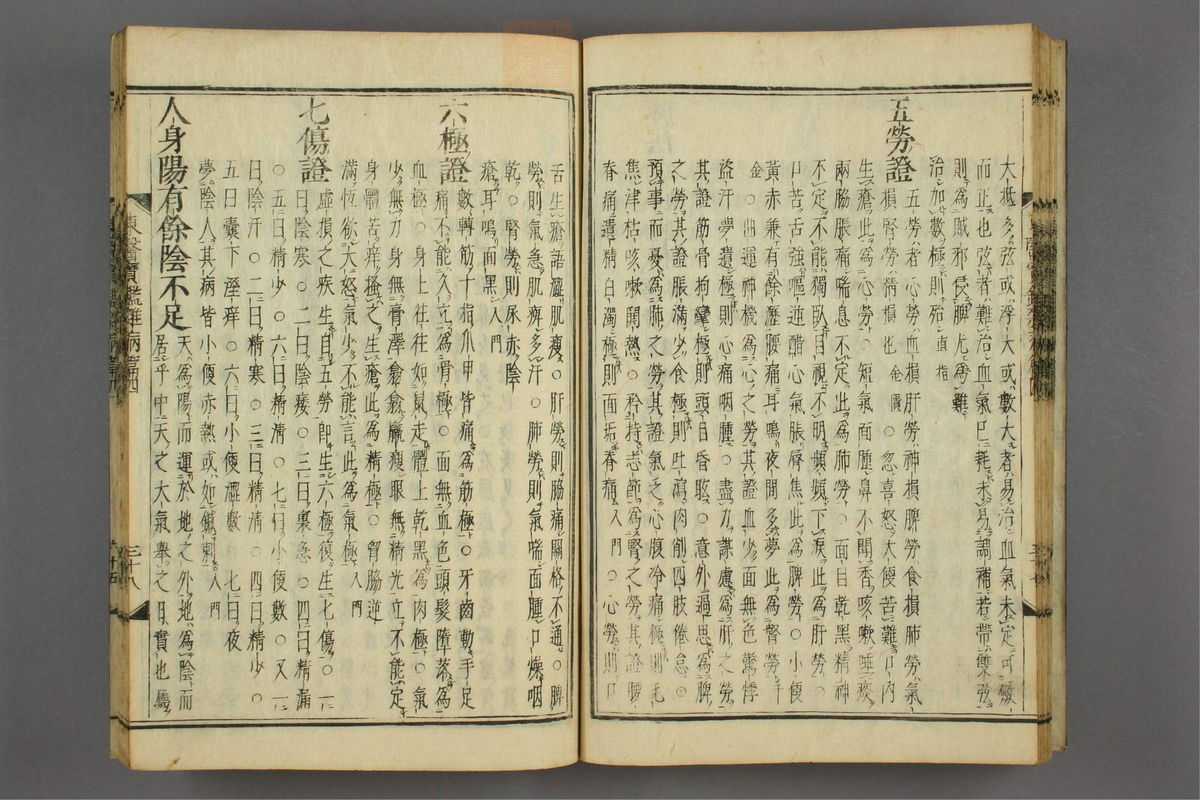 大抵多弦或浮大或數大者易治血氣未定可斂
而正也弦者難治血氣已耗未易調補若帶雙弦
則爲賊邪侵脾尤爲難
治加數極則殆 直指
五勞證
五勞者心勞血損肝勞神損脾勞食損肺勞氣
損腎勞精損也 金匱 ○忽喜怒大便苦難口內
生瘡此爲心勞○短氣面腫鼻不聞香咳嗽唾痰
兩脇脹痛喘息不定此爲肺勞○面目乾黑精神
不定不能獨臥目視不明頻頻下淚此爲肝勞○
口苦舌強嘔逆醋心氣脹脣焦此爲脾勞○小便
黃赤兼有餘瀝腰痛耳鳴夜間多夢此爲腎勞 千
金 ○曲運神機爲心之勞其證血少面無色驚悸
盜汗夢遺極則心痛咽腫○盡力謀慮爲肝之勞
其證筋骨拘攣極則頭目昏眩○意外過思爲脾
之勞其證脹滿少食極則吐瀉肉削四肢倦怠○
預事而憂爲肺之勞其證氣乏心腹冷痛極則毛
焦津枯咳嗽閧熱○矜持志節爲腎之勞其證腰
脊痛遺精白濁極則面垢脊痛 入門 ○心勞則口
舌生瘡語澀肌瘦○肝勞則脇痛關格不通○脾
勞則氣急肌痺多汗○肺勞則氣喘面腫口燥咽
乾○腎勞則尿赤陰
瘡耳鳴面黑 入門
六極證
數轉筋十指爪甲皆痛爲筋極○牙齒動手足
痛不能久立爲骨極○面無血色頭髮墮落爲
血極○身上往往如鼠走體上乾黑爲肉極○氣
少無力身無膏澤翕翕羸瘦眼無精光立不能定
身體苦痒搔之生瘡此爲精極○胷脇逆
滿恆欲大怒氣少不能言此爲氣極 入門
七傷證
虛損之疾生自五勞卽生六極復生七傷○一
曰陰寒○二曰陰痿○三曰裏急○四曰精漏
○五曰精少○六曰精淸○七曰小便數○又一
曰陰汗○二曰精寒○三曰精淸○四曰精少○
五曰囊下溼痒○六曰小便澀數○七曰夜
夢陰人其病皆小便赤熱或如鍼刺 入門
人身陽有餘陰不足
天爲陽而運於地之外地爲陰而
居乎中天之大氣舉之日實也屬
東醫寶鑑雜病篇四
三十八